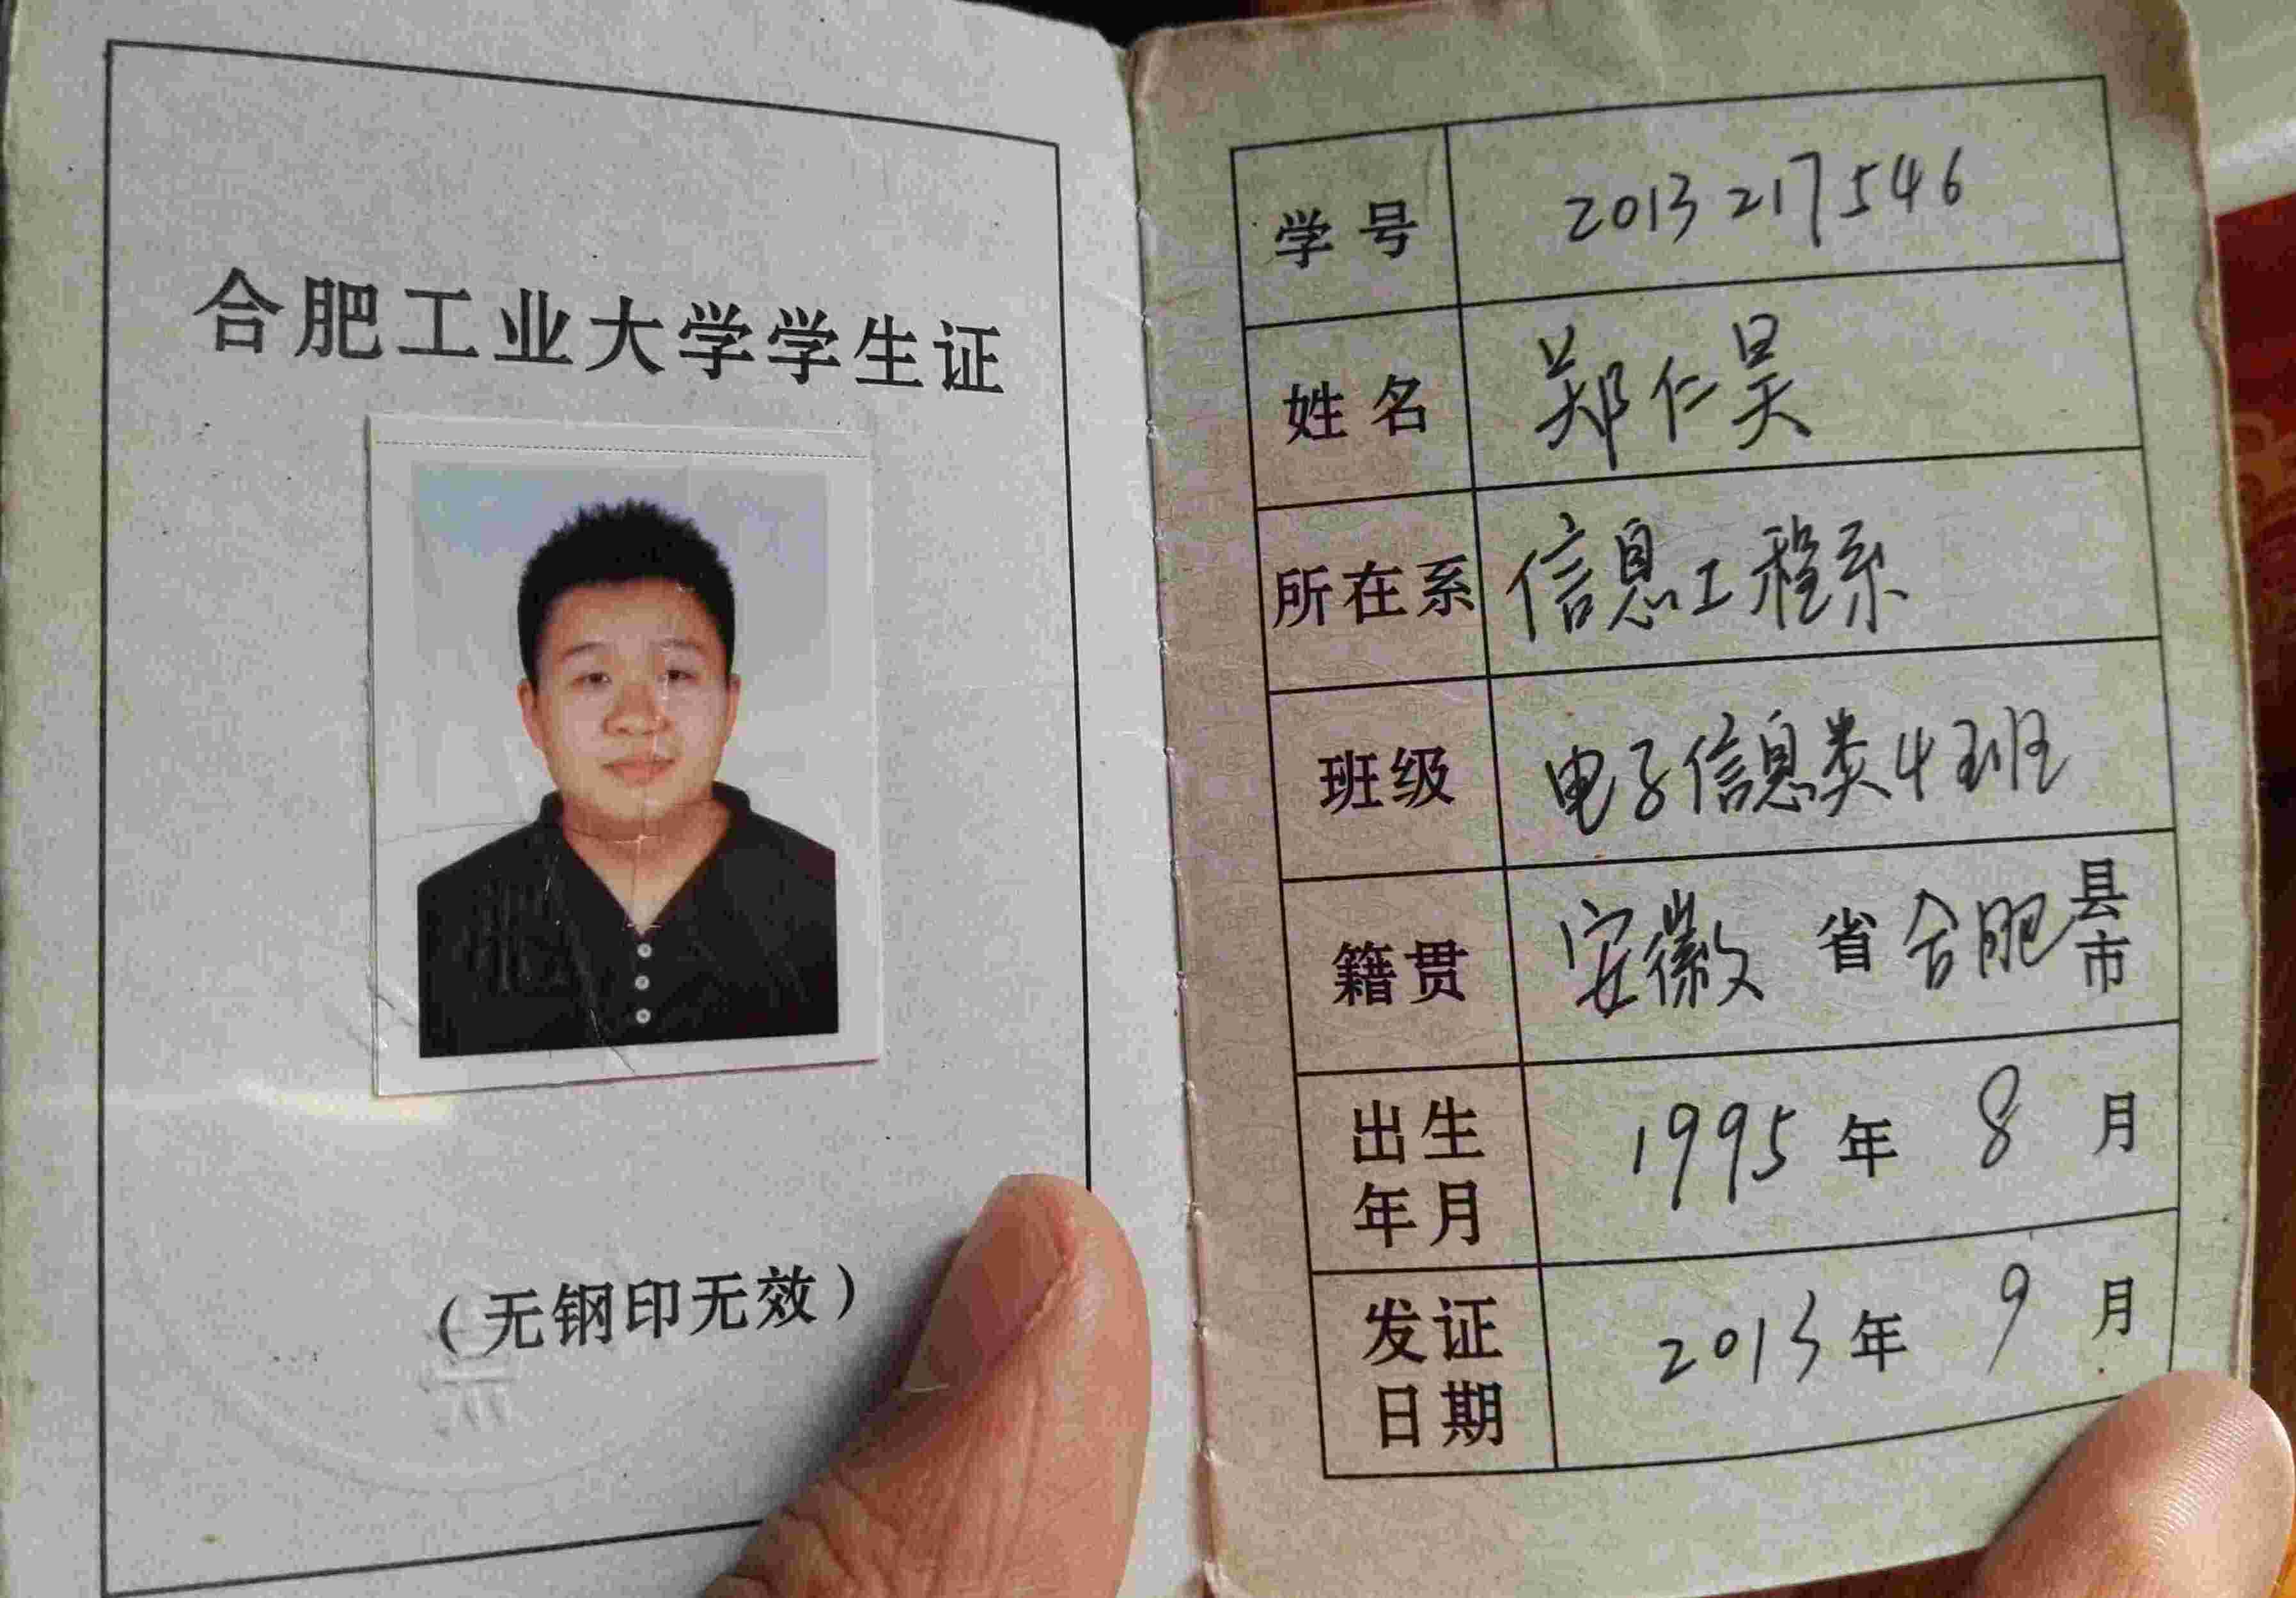 合肥工业大学学生证
（无钢印无效）
学号 2013217546
姓名 郑仁昊
所在系 信息工程系
班级 电子信息类4班
籍贯 安徽 省 合肥 县市
出生年月 1995 年 8 月
发证日期 2013 年 9 月